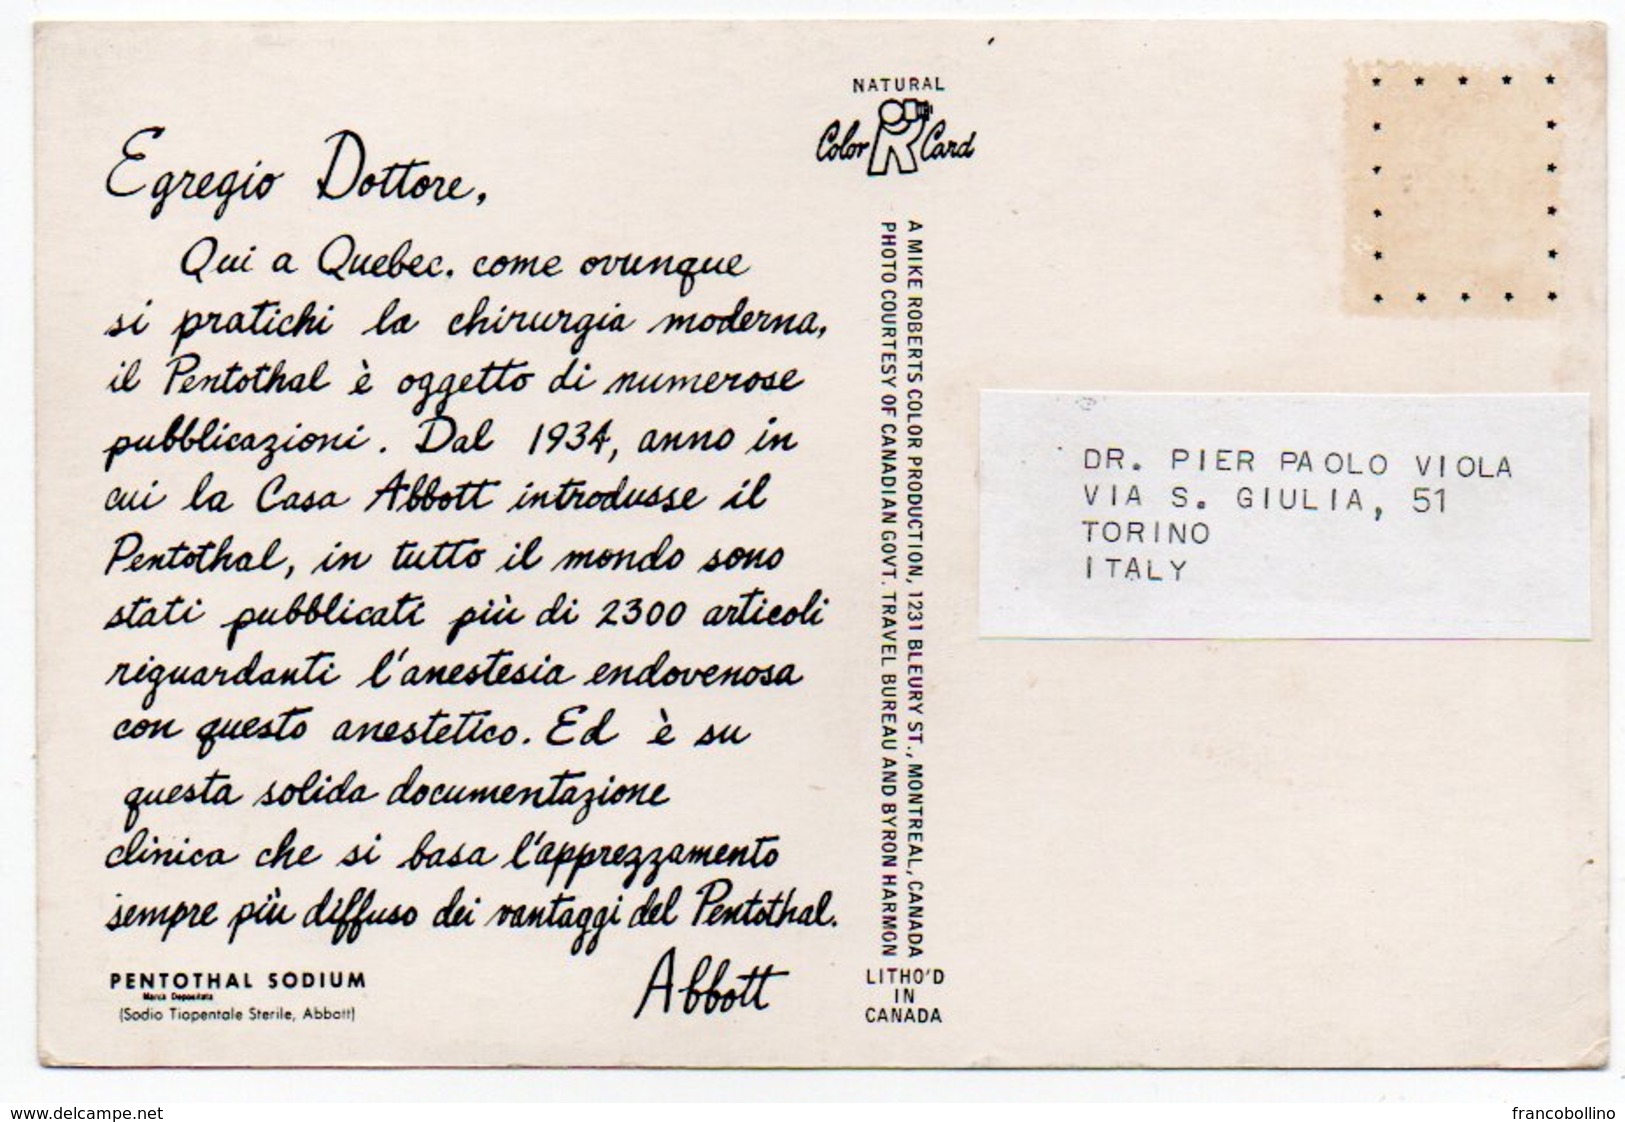 Egregio Dottore,
Qui a Quebec. come ovunque
si pratichi la chirurgia moderna,
il Pentothal è oggetto di numerose
pubblicazioni. Dal 1934, anno in
cui la Casa Abbott introdusse il
Pentothal, in tutto il mondo sono
stati pubblicati più di 2300 articoli
riguardanti l'anestesia endovenosa
con questo anestetico. Ed è su
questa solida documentazione
clinica che si basa l'apprezzamento
sempre più diffuso dei vantaggi del Pentothal.
Abbott
PENTOTHAL SODIUM
Marca Depositata
(Sodio Tiopentale Sterile, Abbott)
NATURAL
Color Card
A MIKE ROBERTS COLOR PRODUCTION, 1231 BLEURY ST., MONTREAL, CANADA
PHOTO COURTESY OF CANADIAN GOVT. TRAVEL BUREAU AND BYRON HARMON
LITHO'D
IN
CANADA
DR. PIER PAOLO VIOLA
VIA S. GIULIA, 51
TORINO
ITALY
www.delcampe.net
francobollino